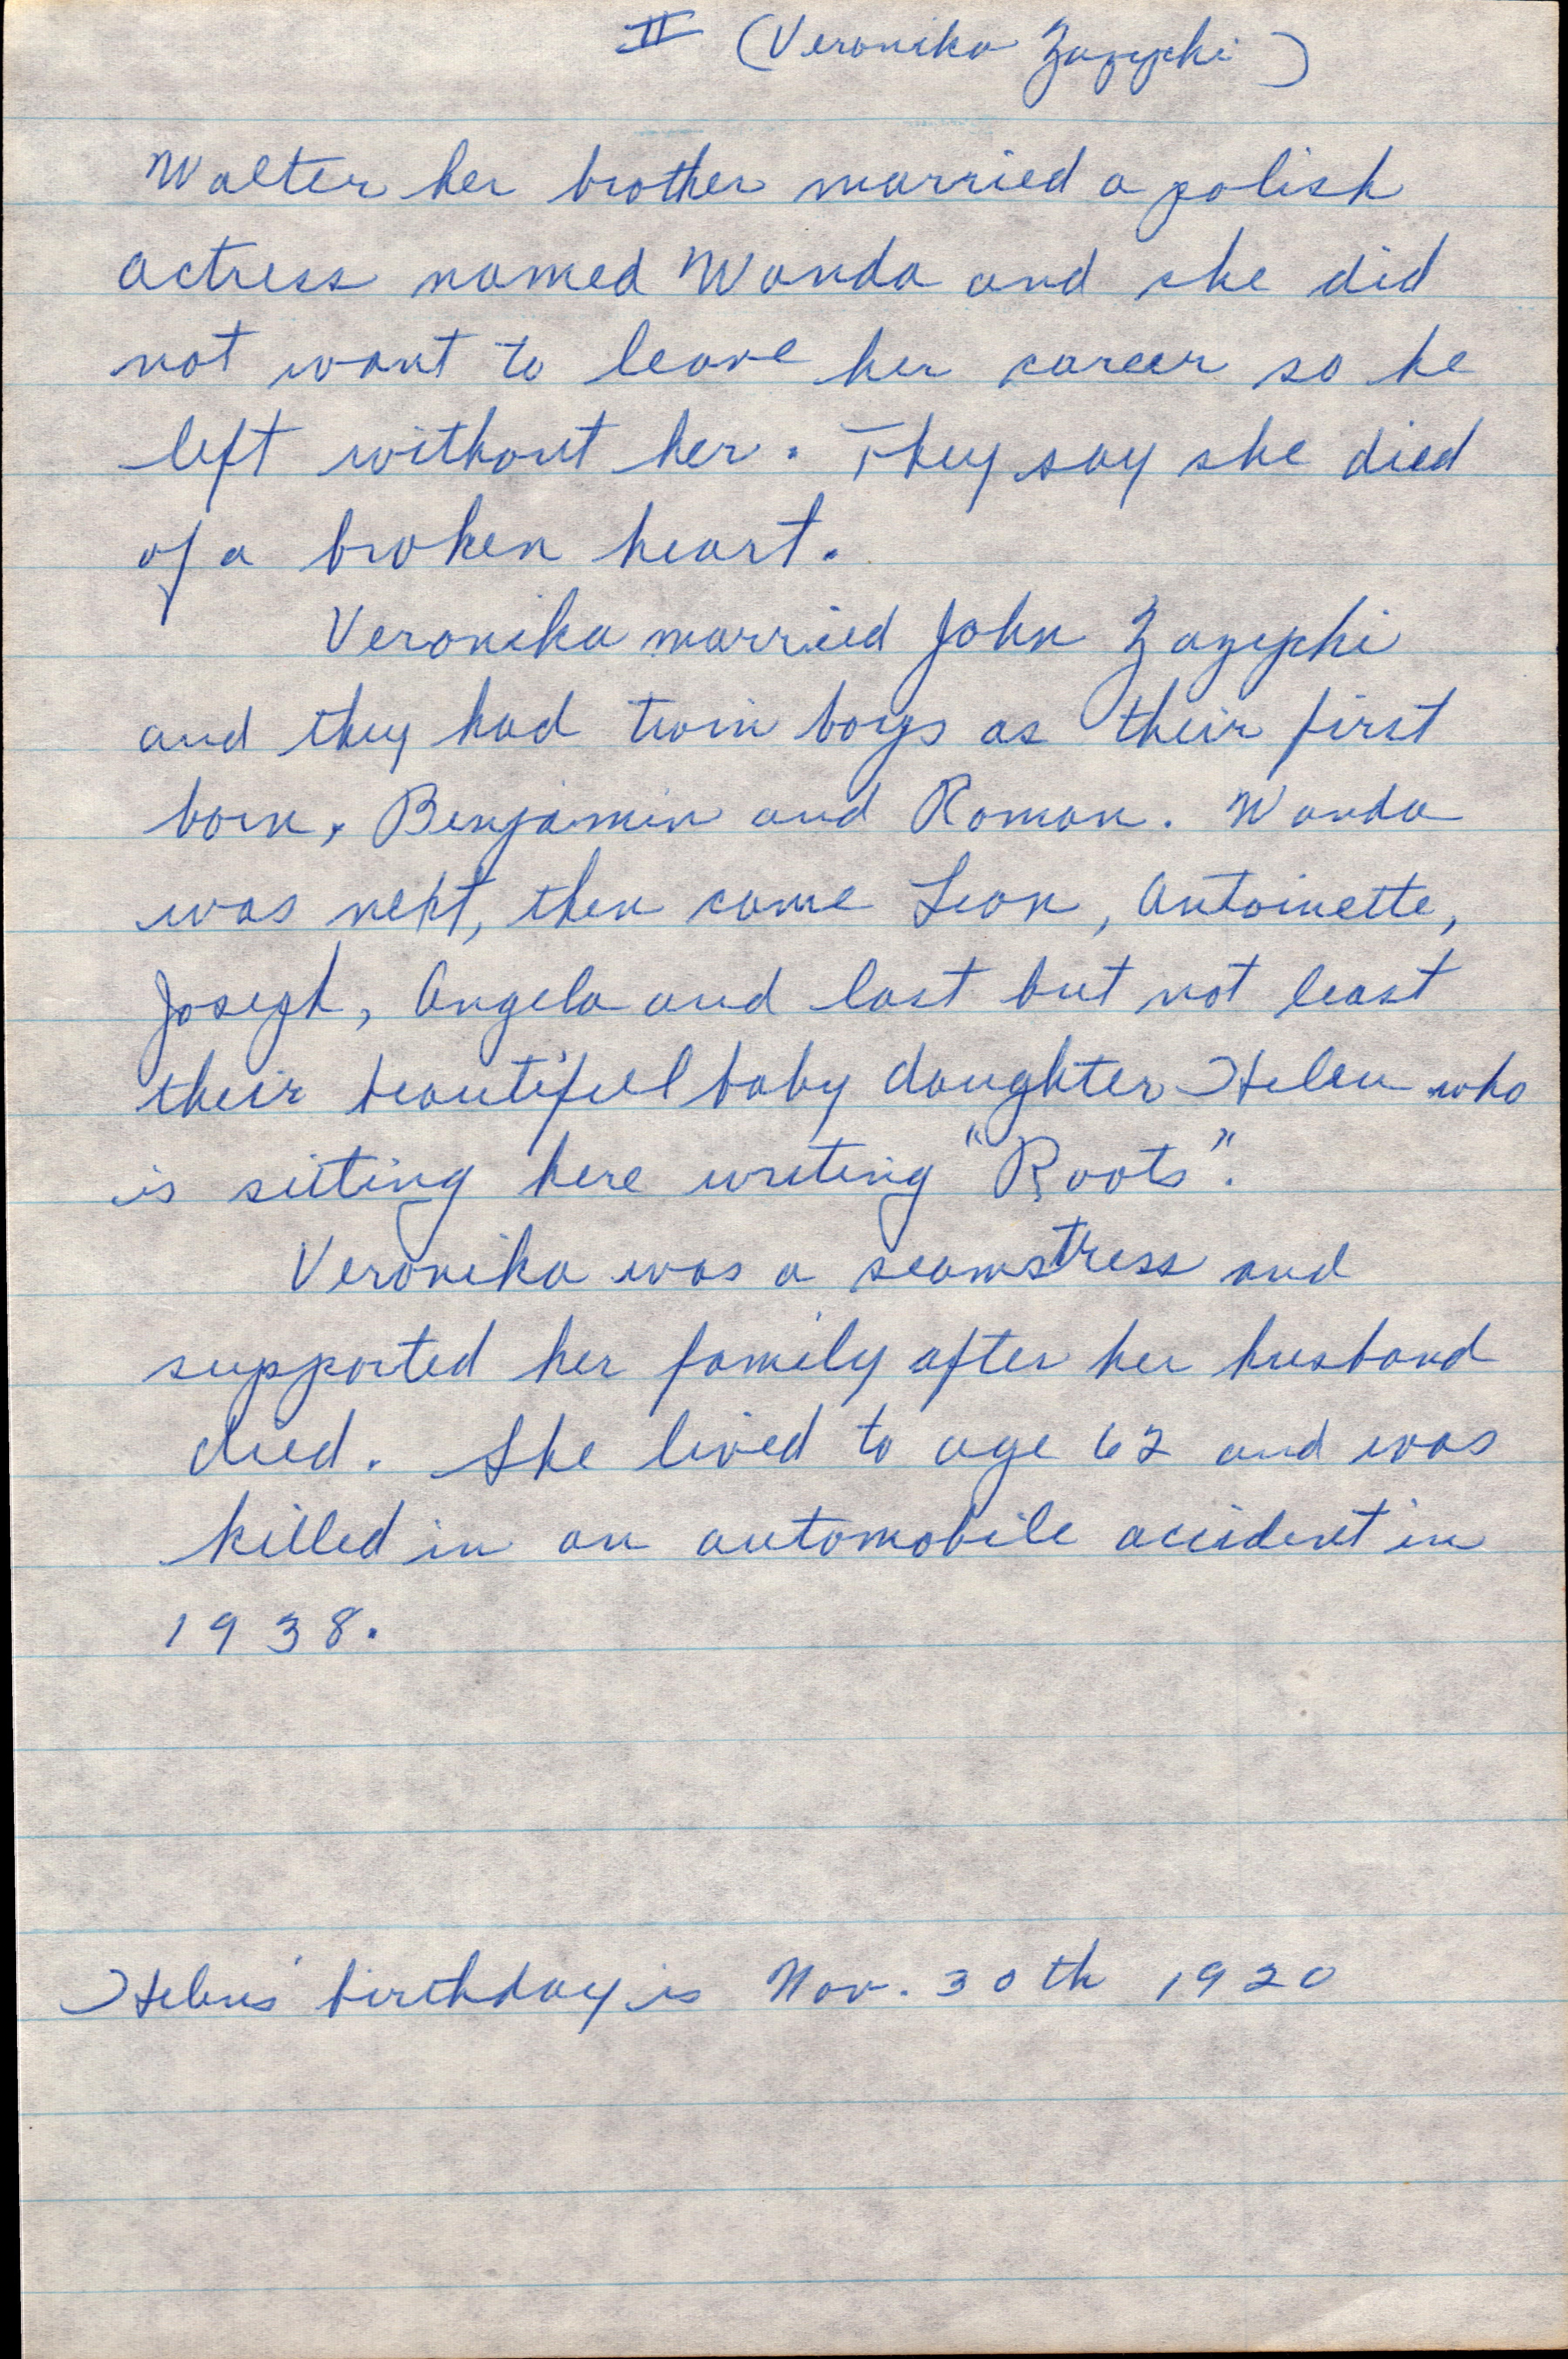 II (Veronika Zazycki)
Walter her brother married a polish
actress named Wanda and she did
not want to leave her career so he
left without her. They say she died
of a broken heart.
Veronika married John Zazycki
and they had twin boys as their first
born, Benjamin and Roman. Wanda
was next, then came Leon, Antoinette,
Joseph, Angela and last but not least
their beautiful baby daughter Helen who
is sitting here writing "Roots".
Veronika was a seamstress and
supported her family after her husband
died. She lived to age 62 and was
killed in an automobile accident in
1938.
Helens' birthday is Nov. 30th 1920